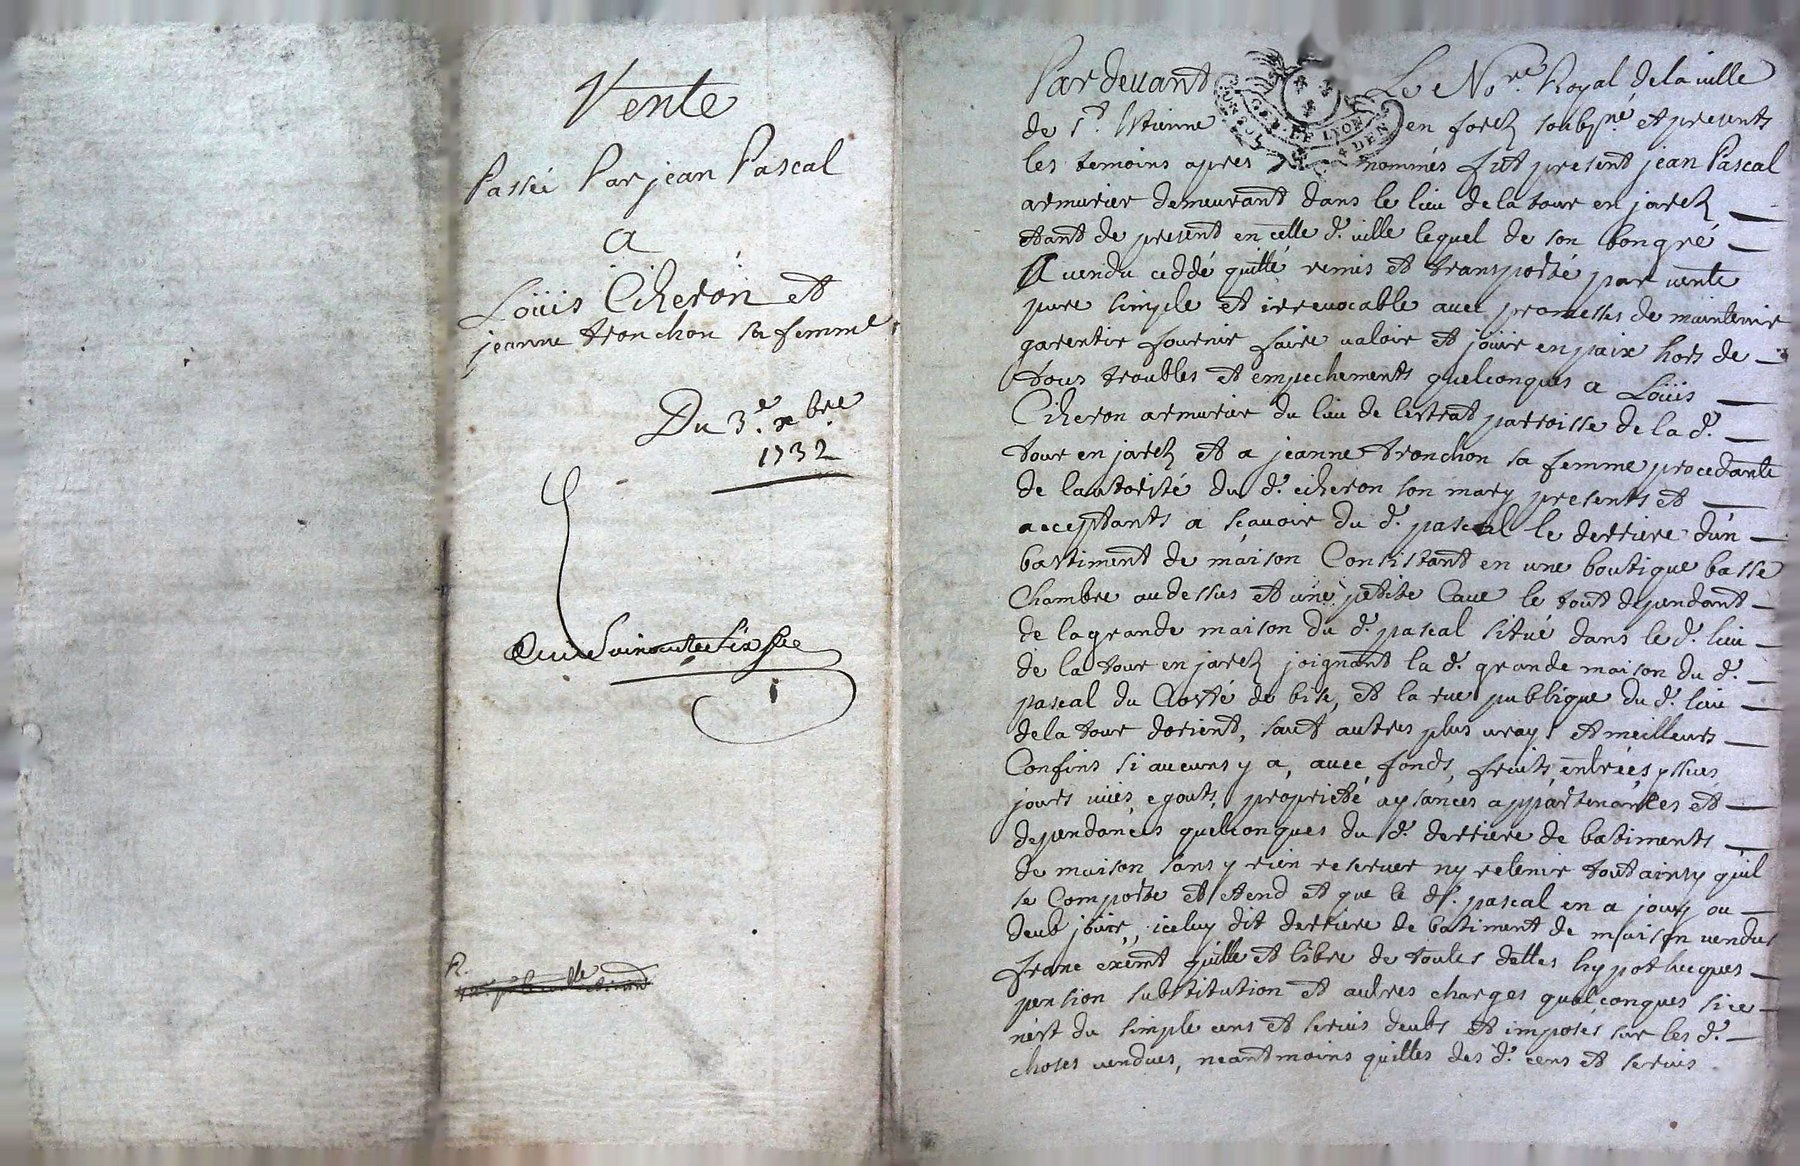 Vente
Passée Par jean Pascal
A
Loüis Ciheron et
jeanne tronchon sa femme
Du 3.e xbre
1732
R.
Pardevant Le No.re Royal de la ville
de St. Etienne en forez soubz.né et presents
les temoins apres nommés fut present jean Pascal
armurier demeurant dans le lieu de la tour en jarez
étant de present en celle d. ville lequel de son bongré
A vendu ceddé quitté remis et transporté par vente
pure simple et irrevocable avec promesses de maintenir
garentir fournir faire valoir et joüir en paix hors de
tous troubles et empechements quelconques a Loüis
Ciheron armurier du lieu de lestrat parroisse de la d.
tour en jarez et a jeanne tronchon sa femme procedante
de lautorité du d. ciheron son mary presents et
acceptants a scavoir du d. pascal le derriere d'un
bastiment de maison Consistant en une boutique basse
Chambre au dessus et une petite Cave le tout dependant
de la grande maison du d. pascal situé dans le d. lieu
de la tour en jarez joignant la d. grande maison du d.
pascal du Costé de bise, et la rue publique du d. lieu
de la tour dorient, sauf autres plus vrays et meilleurs
Confins si aucuns y a, avec fonds, fruits, entrées yssues
jours vües, egouts, proprieté aysances appartenances et
dependances quelconques du d. derriere de batiments
de maison sans y rien reserver ny retenir tout ainsy qu'il
se Comporte et etend et que le d. pascal en a jouy ou
deub joüir, iceluy dit derriere de batiment de maison vendu
franc exemt quitte et libre de toutes dettes hypotheques
pension substitution et autres charges quelconques si ce
n'est du simple cens et servis deubs et imposés sur les d.
choses vendues, neantmoins quittes des d. cens et servis